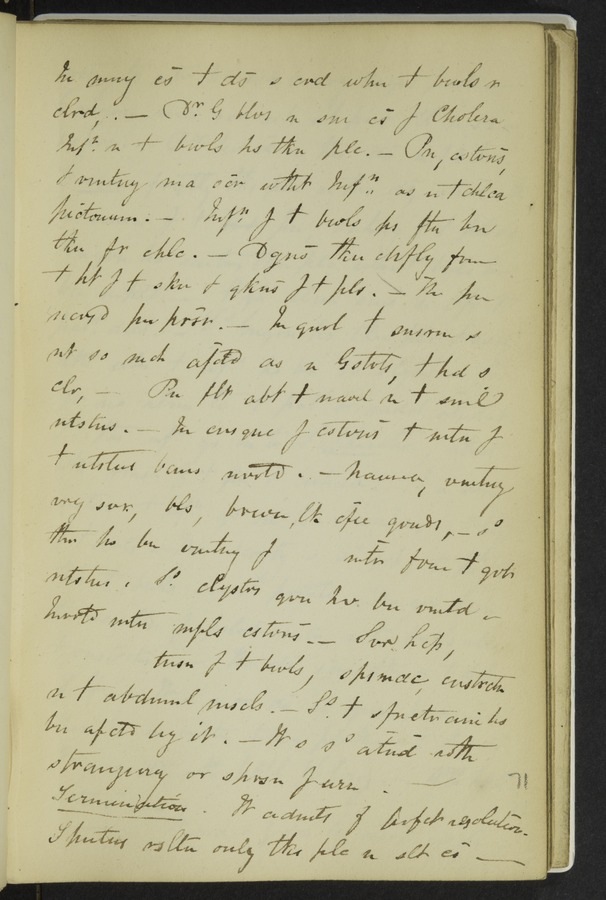 In mny cs † ds s crd whn † bwls r
clrd, . — Dr G blvs n sm cs f Cholera
Infn. n † bwls hs tkn plc. — Pn, cstvns,
& vmtng ma ocr wtht Infn. as n † chlca
pictonum. — Infn. f † bwls hs ftn bn
tkn fr chlc. — Dgns tkn chfly frm
† ht f † skn & qkns f † pls. — Th pn
ncrsd pn prsr. — In gnrl † snsrm s
nt so mch afctd as n Gstrts, † hd s
clr, — Pn flt abt † navel n † smll
ntstns. — In cnsqnc f cstvns † mtn f
† ntstns bcms nvrtd. — Nausea, vmtng
vry svr, bls, brown, lk cfee gronds, — ss
thr hs bn vmtng f mtr from † grt
ntstns. Ss. clystrs gvn hv bn vmtd.
Invrtd mtn mpls cstvns. — Svr hcps,
tnsn f † bwls, spsmdc cnstrctn
n † abdmnl mscls. — Ss. † sfnctr ani hs
bn afctd by it. — It s ss atnd with
strangury or sprsn f urn. —
Termination. It admits of perfect resolution.
Sphclus vsltn only tks plc n slt cs —
71